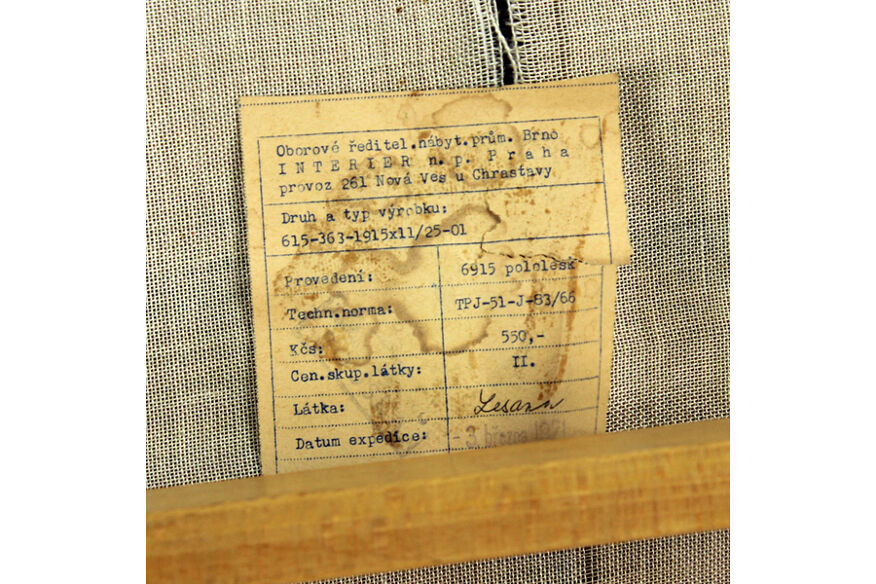 Oborové ředitel.nábyt.prům. Brno
INTERIER n.p. Praha
provoz 261 Nová Ves u Chrastavy
Druh a typ výrobku:
615-363-1915x11/25-01
Provedení: 6915 pololesk
Techn.norma: TPJ-51-J-83/66
Kčs: 550,-
Cen.skup.látky: II.
Látka:
Datum expedíce: - 3. března 1971